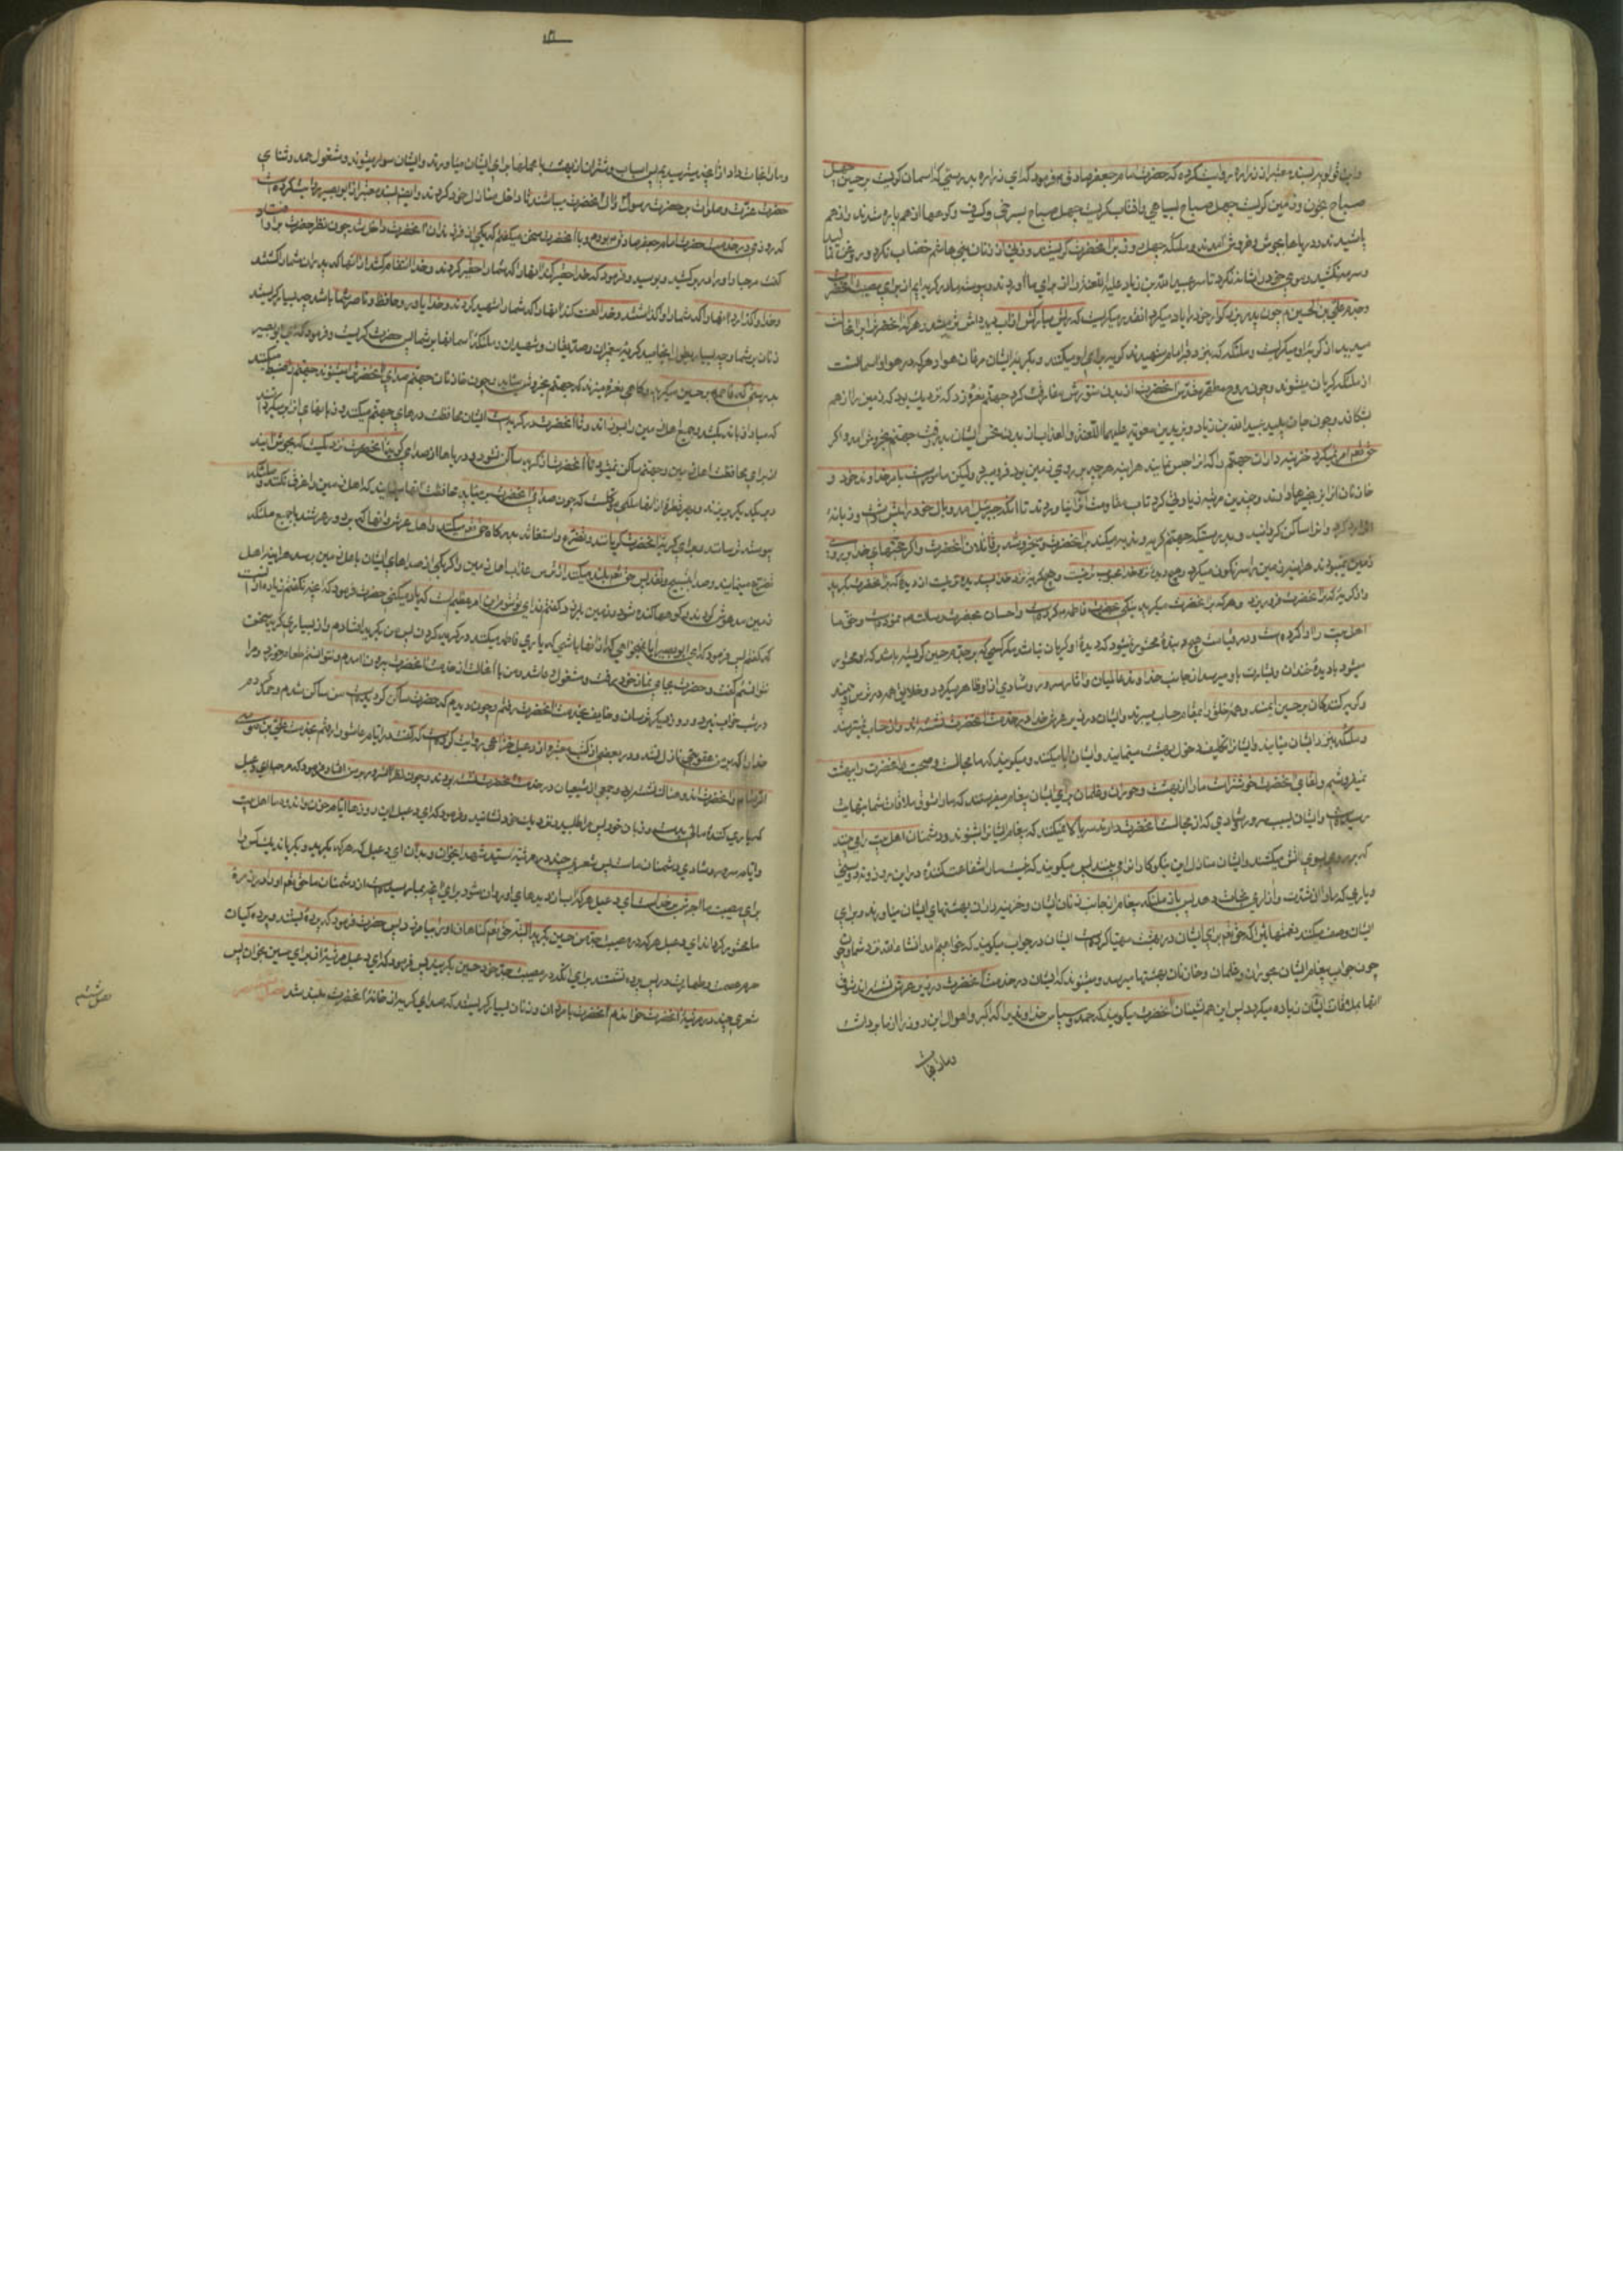 و ابن قولویه بسند معتبر از زراره روایت کرده که حضرت امام جعفر صادق ع فرمود که ای زراره بدرستی که آسمان گریست بر حسین چهل
صباح بخون و زمین گریست چهل صباح بسیاهی و آفتاب گریست چهل صباح بسرخی و کسوف و کوهها از هم پاره شدند و از هم
پاشیدند و دریاها بجوش و خروش آمدند و ملائکه چهل روز بر آنحضرت گریستند و زنی از زنان بنی هاشم خضاب نکرد و روغن نمالید
و سرمه نکشید و موی خود را شانه نکرد تا سر عبیدالله بن زیاد علیه اللعنه را از برای ما آوردند و پیوسته ما در گریه ایم از برای مصیبت آنحضرت
و جدم علی بن الحسین ع چون پدر بزرگوار خود را یاد میکرد آنقدر میگریست که ریش مبارکش از آب دیده اش تر میشد و هر که آنحضرت را بر آن حالت
میدید از گریه او میگریست و ملائکه که نزد قبر امام شهیدند گریه برای او میکنند و بگریه ایشان مرغان هوا و هر که در هوا و آسمانست
از ملائکه گریان میشوند و چون روح مطهر مقدس آنحضرت از بدن منورش مفارقت کرد جهنم نعره زد که نزدیک بود که زمین را از هم
بشکافد و چون جان پلید عبیدالله بن زیاد و یزید بن معویه علیهما اللعنه و العذاب از بدن نحس ایشان بدر رفت جهنم بخروش آمد و اگر
حق تعالی امر نمیکرد خزینه داران جهنم را که آنرا حبس نمایند هر آینه هر چه بر روی زمین بود فرو میبرد ولیکن مامورست بامر خداوند خود و
خازنان آنرا بزنجیرها دارند و چندین مرتبه زیادتی کرد تاب
افزاید کرد و آنرا ساکن گردانید و بدرستیکه جهنم گریه و ندبه میکند بر آنحضرت و میخروشد بر قاتلان آنحضرت و اگر حجتهای خدا بر روی
زمین نمیبودند هر آینه زمین را سرنگون میکرد و هیچ دیده نزد خدا محبوب تر نیست و هیچ گریه نزد خدا پسندیده تر نیست از دیده که بر آنحضرت بگرید
و از گریه که بر آنحضرت فرو ریزد و هر که بر آنحضرت میگرید نیکی بحضرت فاطمه کرده است و احسان بحضرت رسالت نموده است و حق ما
اهل بیت را ادا کرده است و در قیامت هیچ بنده محشور نمیشود که دیده او گریان نباشد مگر کسی که بر جدم حسین گریسته باشد که او محشور
میشود با دیده خندان و بشارت باو میرسد از جانب خداوند عالمیان و آثار سرور و شادی از او ظاهر میگردد و خلایق همه در ترس و بیمند
و گریه کنندگان بر حسین ایمنند و همه خلق را بمقام حساب میبرند و ایشان در زیر عرش خدا در خدمت آنحضرت نشسته اند و از حساب نمیترسند
و ملائکه نزد ایشان میآیند و ایشانرا تکلیف دخول بهشت مینمایند و ایشان ابا میکنند و میگویند که ما مجالست و صحبت آنحضرت را ببهشت
نمیفروشیم و لقای آنحضرت خوشتر است ما را از بهشت و حوریان و غلمان برای ایشان پیغام میفرستند که ما را شوق ملاقات شما بنهایت
رسیده است و ایشان بسبب سرور و شادی که از مجالست آنحضرت دارند سر بالا نمیکنند که پیغام ایشانرا بشنوند و دشمنان اهل بیت را می بینند
که بر رو بسوی آتش میکشند و ایشان منازل این نیکوکارانرا می بینند پس میگویند که نیست ما را شفاعت کننده در این روز و نه دوستی
و یاری که ما را از این شدت و آزاری نجات دهد پس باز ملائکه پیغام از جانب زنان ایشان و خزینه داران بهشتهای ایشان میآورند و برای
ایشان وصف میکنند نعمتهائی را که حق تعالی برای ایشان در بهشت مهیا کرده است ایشان در جواب میگویند که خواهیم آمد انشاء الله نزد شما
چون جواب پیغام ایشان بحوریان و غلمان و خازنان بهشتها میرسد و میشنوند که ایشان در خدمت آنحضرت در زیر عرش نشسته اند شوق
آنها بملاقات ایشان زیاده میگردد پس این هم نشینان آنحضرت میگویند که حمد و سپاس خداوندی را که فزع اکبر و اهوال این روز را از ما برداشت
و ما را نجات
و ما را نجات داد از آنچه میترسیدیم پس اسبان و شتران از بهشت با محملها برای ایشان میآورند و ایشان سوار میشوند و مشغول حمد و ثنای
حضرت عزت و صلوات بر حضرت رسول و آل آنحضرت میباشند تا داخل منازل خود گردند و ایضا بسند معتبر از ابو بصیر روایت کرده است
که روزی در خدمت حضرت امام جعفر صادق ع بودم و با آنحضرت سخن میگفتم که یکی از فرزندان آنحضرت داخل شد چون نظر حضرت بر او افتاد
گفت مرحبا و او را در بر کشید و بوسید و فرمود که خدا حقیر کند آنها را که شما را حقیر کردند و خدا انتقام کشد از آنها که پدران شما را کشتند
و خدا واگذارد آنها را که شما را واگذاشتند و خدا لعنت کند آنها را که شما را شهید کردند و خدا یاور و حافظ و ناصر شما باشد چه بسیار گریستند
زنان بر شما و چه بسیار بطول انجامید گریه پیغمبران و صدیقان و شهیدان و ملائکه آسمانها بر شما پس حضرت گریست و فرمود که ای ابو بصیر
بدرستی که فاطمه ع بر حسین میگرید و گاهی نعره میزند که جهنم بخروش میآید و چون خازنان جهنم صدای آنحضرت را میشنوند جهنم را ضبط میکنند
که مبادا زبانه بکشد و جمیع اهل زمین را بسوزاند و تا آنحضرت در گریه است ایشان محافظت درهای جهنم میکنند
از برای محافظت اهل زمین و جهنم ساکن نمیشود تا آنحضرت از گریه ساکن نشود و دریاها از صدای گریه آنحضرت نزدیکست که بجوش آیند
و بر یکدیگر بریزند و بهر قطره از آنها ملکی موکلست که چون صدای آنحضرت میآید محافظت آنها مینماید که اهل زمین را غرق نکنند و ملائکه
پیوسته ترسانند و برای گریه آنحضرت گریانند و تضرع و استغاثه بدرگاه حق تعالی میکنند و اهل عرش و آنها که بر دور عرشند با جمیع ملائکه
تضرع مینمایند و صدا بتسبیح و تقدیس حق تعالی بلند میکنند از ترس عذاب اهل زمین و اگر یکی از صداهای ایشان باهل زمین برسد هر آینه اهل
زمین مدهوش گردند و کوهها کنده شود و زمین بلرزد گفتم فدای تو شوم این امر عظیمست که یاد میکنی حضرت فرمود که آنچه نگفتم زیاده از آنست
که گفتم پس فرمود که ای ابو بصیر آیا نمیخواهی که از آنها باشی که یاری فاطمه میکنند در گریه کردن پس من بگریه افتادم و از بسیاری گریه سخن
نتوانستم گفت و حضرت بجای نماز خود رفت و مشغول دعا شد و من با آن حال از خدمت آنحضرت بیرون آمدم و نتوانستم طعام خورد و مرا
در شب خواب نبرد و روز دیگر ترسان و خایف بخدمت آنحضرت رفتم و چون دیدم که حضرت ساکن گردیده است من ساکن شدم و حمد کردم
خدا را که بر من عقوبتی نازل نشد و در بعضی از کتب معتبره از دعبل خزاعی روایت کرده است که گفت در ایام عاشورا رفتم بخدمت علی بن موسی
الرضا ع و آنحضرت اندوهناک نشسته بودند و جمعی از شیعیان در خدمت آنحضرت نشسته بودند و چون نظر آن سرور بر من افتاد فرمود که مرحبا ای دعبل
که یاری کننده مائی بدست و زبان خود پس مرا طلبید و نزدیک خود نشانید و فرمود که ای دعبل این روزها ایام حزن و اندوه ما اهل بیت
و ایام سرور و شادی دشمنان ماست پس شعری چند در مرثیه سید شهدا بخوان و بدان ای دعبل که هر که بگرید و بگریاند یک کس را
برای مصیبت ما اجرش بر خداست ای دعبل هر که آب از دیدهای او روان شود برای آنچه بما رسیده است از دشمنان ما حق تعالی او را در زمره
ما محشور گرداند ای دعبل هر که در مصیبت جد من حسین بگرید البته حق تعالی گناهان او را بیامرزد پس حضرت فرمود که پرده بستند و پرده گیان
حرم عصمت و طهارت در پس پرده نشستند برای آنکه در مصیبت جد خود حسین بگریند پس فرمود که ای دعبل مرثیه از برای حسین بخوان پس
شعری چند در مرثیه آنحضرت خواندم آنحضرت با مردان و زنان بسیار گریستند که صدای گریه از خانه آنحضرت بلند شد
فصل ششم